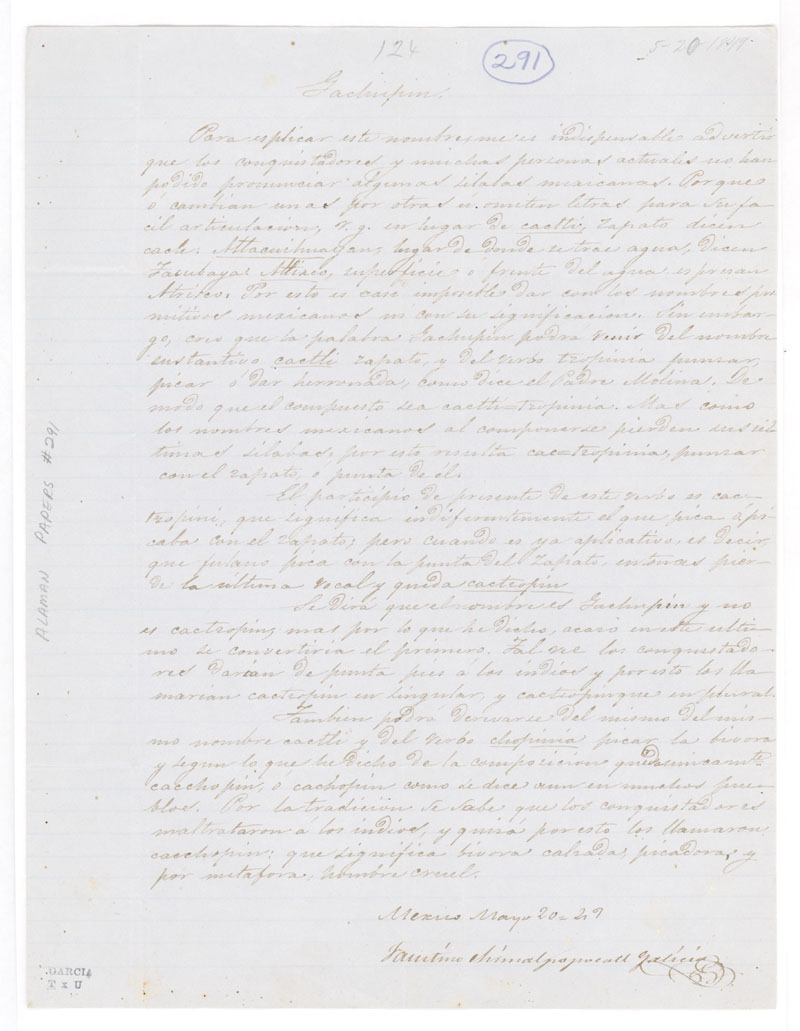 124
291
5-20 1849
Gachupin.
Para esplicar este nombre, me es indispensable advertir
que los conquistadores y muchas personas actuales no han
podido pronunciar algunas silabas mexicanas. Porque
ó cambian unas por otras u omiten letras para su fa-
cil articulacion, v.g. en lugar de cactli, zapato dicen
cacle: Atlacuihuayan, lugar de donde se trae agua, dicen
Tacubaya: Atlixco, superficie ó frente del agua espresan
Atrisco. Por esto es casi imposible dar con los nombres pri-
mitivos mexicanos ni con su significacion. Sin embar-
go, creo que la palabra Gachupin podrá venir del nombre
sustantivo cactli zapato, y del verbo tzopinia punzar,
picar ó dar herronada, como dice el Padre Molina. De
modo que el compuesto sea cactli=tzopinia. Mas como
los nombres mexicanos al componerse pierden sus úl-
timas silabas, por esto resulta cac=tzopinia, punzar
con el zapato, ó punta de él.
El participio de presente de este verbo es cac-
tzopini, que significa indiferentemente el que pica ó pi-
caba con el zapato; pero cuando es ya aplicativo, es decir,
que fulano pica con la punta del zapato, entonces pier-
de la última vocal y queda cactzopin
Se dirá que el nombre es Gachupin y no
es cactzopin, mas por lo que he dicho, acaso en este ulti-
mo se convertiria el primero. Tal vez los conquistado-
res darian de punta pies á los indios y por esto los lla-
marian cactzopin en singular, y cactzopinque en plural.
Tambien podrá derivarse del mismo del mis-
mo nombre cactli y del verbo chopinia picar la bivora
y segun lo que he dicho de la composicion queda unicamte.
cacchopin, ó cachopin como se dice aun en muchos pue-
blos. Por la tradicion se sabe que los conquistadores
maltrataron á los indios, y quizá por esto los llamaron
cacchopin: que significa bivora calzada, picadora, y
por metafora, hombre cruel.
Mexico Mayo 20=49
Faustino Chimalpopocatl Galicia
ALAMAN PAPERS #291
GARCIA
T x U